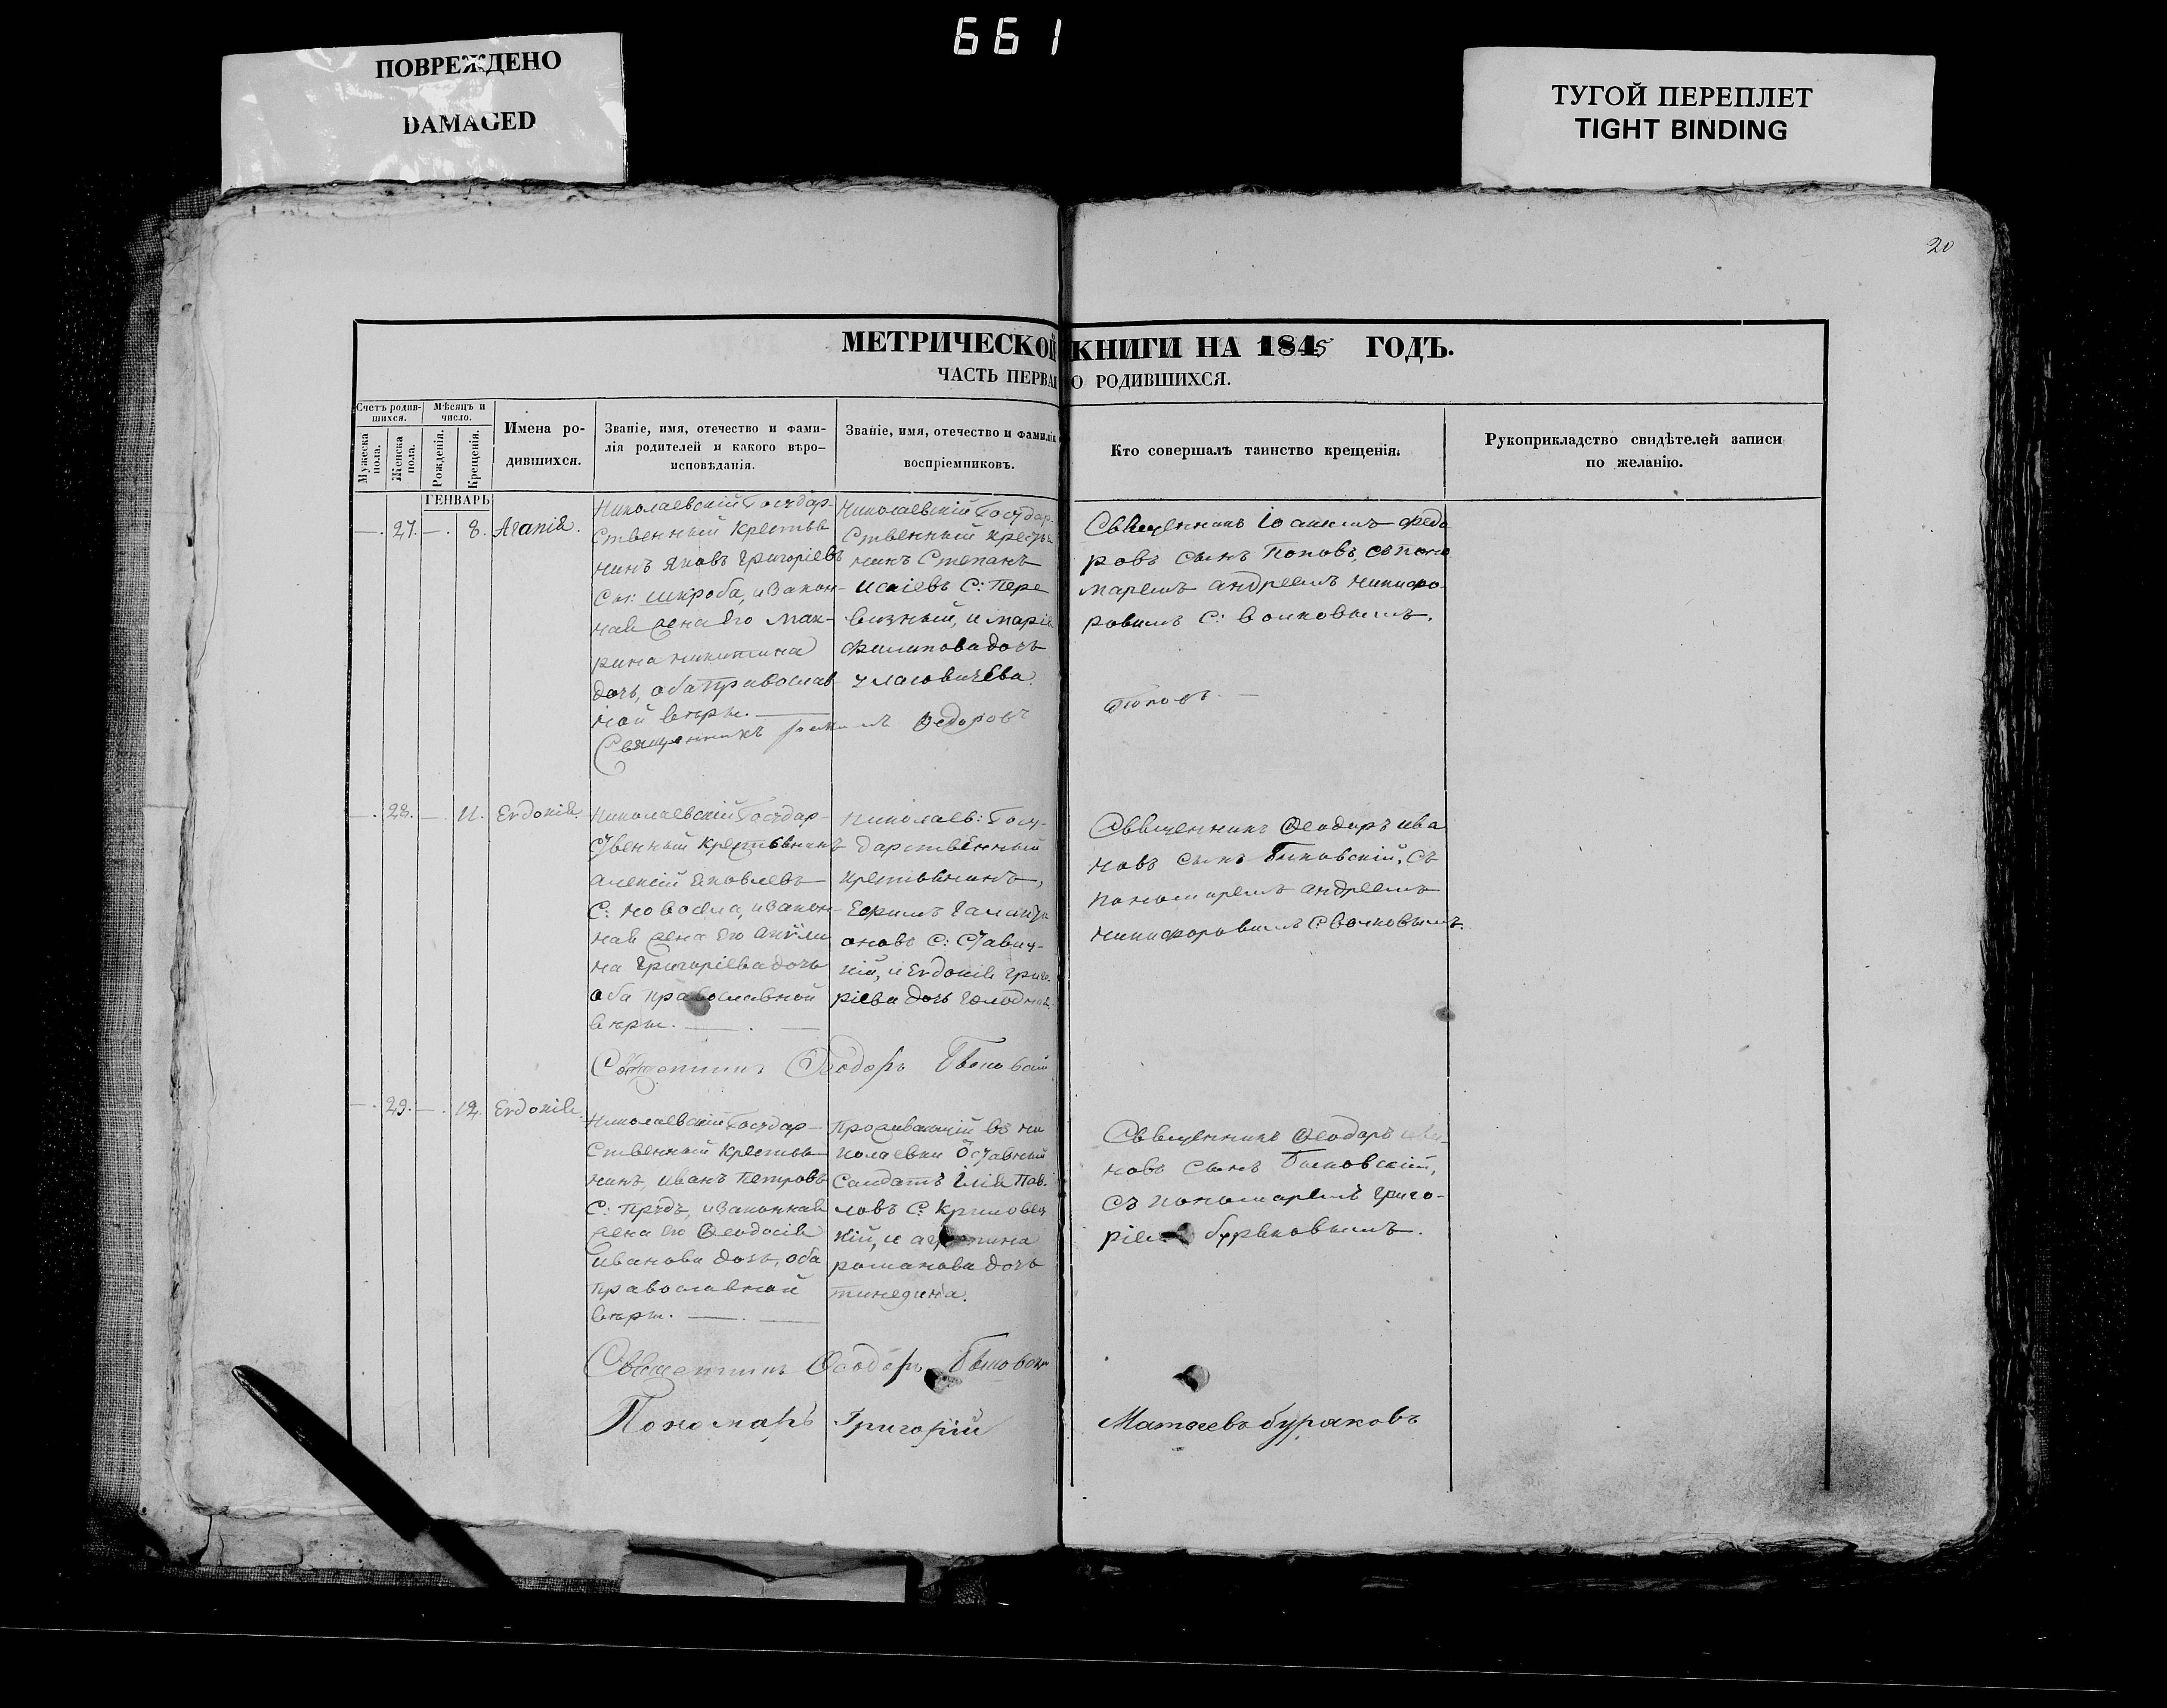 661
ПОВРЕЖДЕНО
DAMAGED
ТУГОЙ ПЕРЕПЛЕТ
TIGHT BINDING
20
МЕТРИЧЕСКОЙ КНИГИ НА 1845 ГОДЪ.
ЧАСТЬ ПЕРВАЯ О РОДИВШИХСЯ.
Счетъ родив-
шихся.
Мужеска
пола.
Женска
пола.
Мѣсяцъ и
число.
Рожденія.
Крещенія.
Имена ро-
дившихся.
Званіе, имя, отечество и фами-
лія родителей и какого вѣро-
исповѣданія.
Званіе, имя, отечество и фамилія
воспріемниковъ.
Кто совершалъ таинство крещенія.
Рукоприкладство свидѣтелей записи
по желанію.
ГЕНВАРЬ
—. 27. —. 8. Агапія.
Николаевскій Государ-
ственный крестья
нинъ Яковъ Григоріевъ
сы: шкроба, и закон-
ная жена Его Мак-
рина никитина
дочь, оба православ-
ной вѣры. —
Николаевскій Государ-
ственный кресть
нинъ Степанъ
Исаіевъ С: Пере
визный, и Марія
Филипова дочь
Священникъ Іоакимъ Федо
ровъ сынъ Поповъ, съ поно
маремъ андреемъ никифо-
ровымъ С: волковымъ.
Священникъ Іоакимъ Федоровъ Поповъ. —
—. 28. —. 11. Евдокія.
Николаевскій Государ-
ственный крестьянинъ
алексій Яковлевъ
С: , и закон-
ная жена Его Акули
на Григоріева дочь
оба православной
вѣры. — . —
Николаев: Госу-
дарственный
крестьянинъ,
Ефимъ
оновъ С: Ставиц-
кій, и Евдокія Григо-
ріева дочь голодная.
Священникъ Феодоръ ива
новъ сынъ Быковскій, съ
пономаремъ андреемъ
никифоровымъ С: волковымъ.
Священникъ Феодоръ Быковскій
—. 29. —. 12. Евдокія.
Николаевскій Государ-
ственный крестья
нинъ, иванъ Петровъ
С: , и законная
жена Его Феодосія
иванова дочь, оба
православной
вѣры. — . —
Проживающій въ ни
колаевки Отставный
Салдатъ Илія Пав-
ловъ С: Криловец
кій, и
романова дочь
Священникъ Феодоръ ива-
новъ сынъ Быковскій,
съ пономаремъ Григо-
ріемъ буряковымъ.
Священникъ Феодоръ Быковскій
Пономарь Григорій Матвеевъ буряковъ